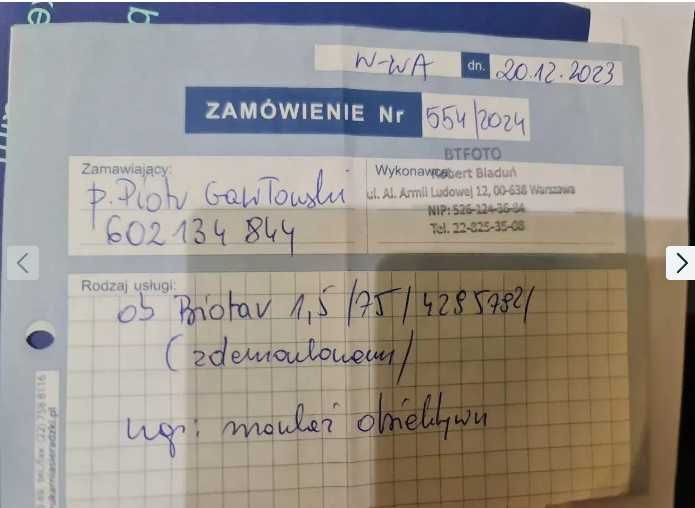 W-WA dn. 20.12.2023
ZAMÓWIENIE Nr 554/2024
Zamawiający:
p. Piotr Gawłowski
602 134 844
Wykonawca:
BTFOTO
Robert Biaduń
ul. Al. Armii Ludowej 12, 00-638 Warszawa
NIP: 526-124-36-84
Tel. 22-825-35-08
Rodzaj usługi:
ob Biotar 1,5/75/4285782/
(zdemontowany/
montaż obiektywu
(22) 758 8116